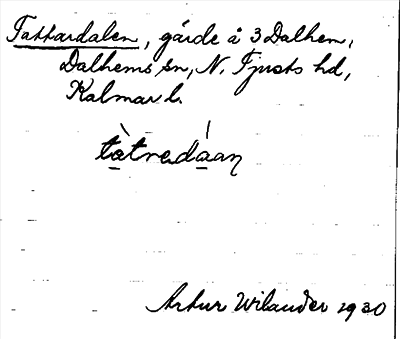 Tattardalen, gärde å 3 Dalhem,
Dalhems sn, N. Tjusts hd,
Kalmar l.
tàtredáan
Artur Wilander 1930